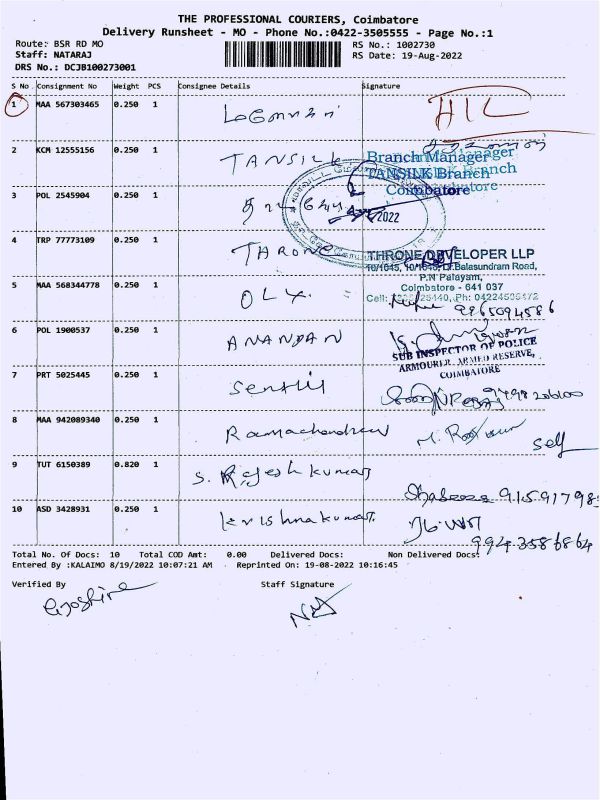 THE PROFESSIONAL COURIERS, Coimbatore
Delivery Runsheet - MO - Phone No.:0422-3505555 - Page No.:1
Route: BSR RD MO RS No.: 1002730
Staff: NATARAJ RS Date: 19-Aug-2022
DRS No.: DCJB100273001
S No Consignment No Weight PCS Consignee Details Signature
1 MAA 567303465 0.250 1 HIL
2 KCM 12555156 0.250 1 TANSILK
Branch Manager
TANSILK Branch
Coimbatore
3 POL 2545904 0.250 1
2022
4 TRP 77773109 0.250 1 THRONE
THRONE DEVELOPER LLP
10/1045, Balasundram Road,
P.N Palayam,
Coimbatore - 641 037
5 MAA 568344778 0.250 1 OLX
Cell: 25440, Ph: 04224506472
9865094586
6 POL 1900537 0.250 1 ANANDAN
SUB INSPECTOR OF POLICE
ARMOURER, ARMED RESERVE,
COIMBATORE
7 PRT 5025445 0.250 1 Senthil
8 MAA 942089340 0.250 1 Ramachandran
self
9 TUT 6150389 0.820 1 S. Rajesh kumar
915917985
10 ASD 3428931 0.250 1 krishnakumar.
994 3586864
Total No. Of Docs: 10 Total COD Amt: 0.00 Delivered Docs: Non Delivered Docs:
Entered By :KALAIMO 8/19/2022 10:07:21 AM Reprinted On: 19-08-2022 10:16:45
Verified By Staff Signature